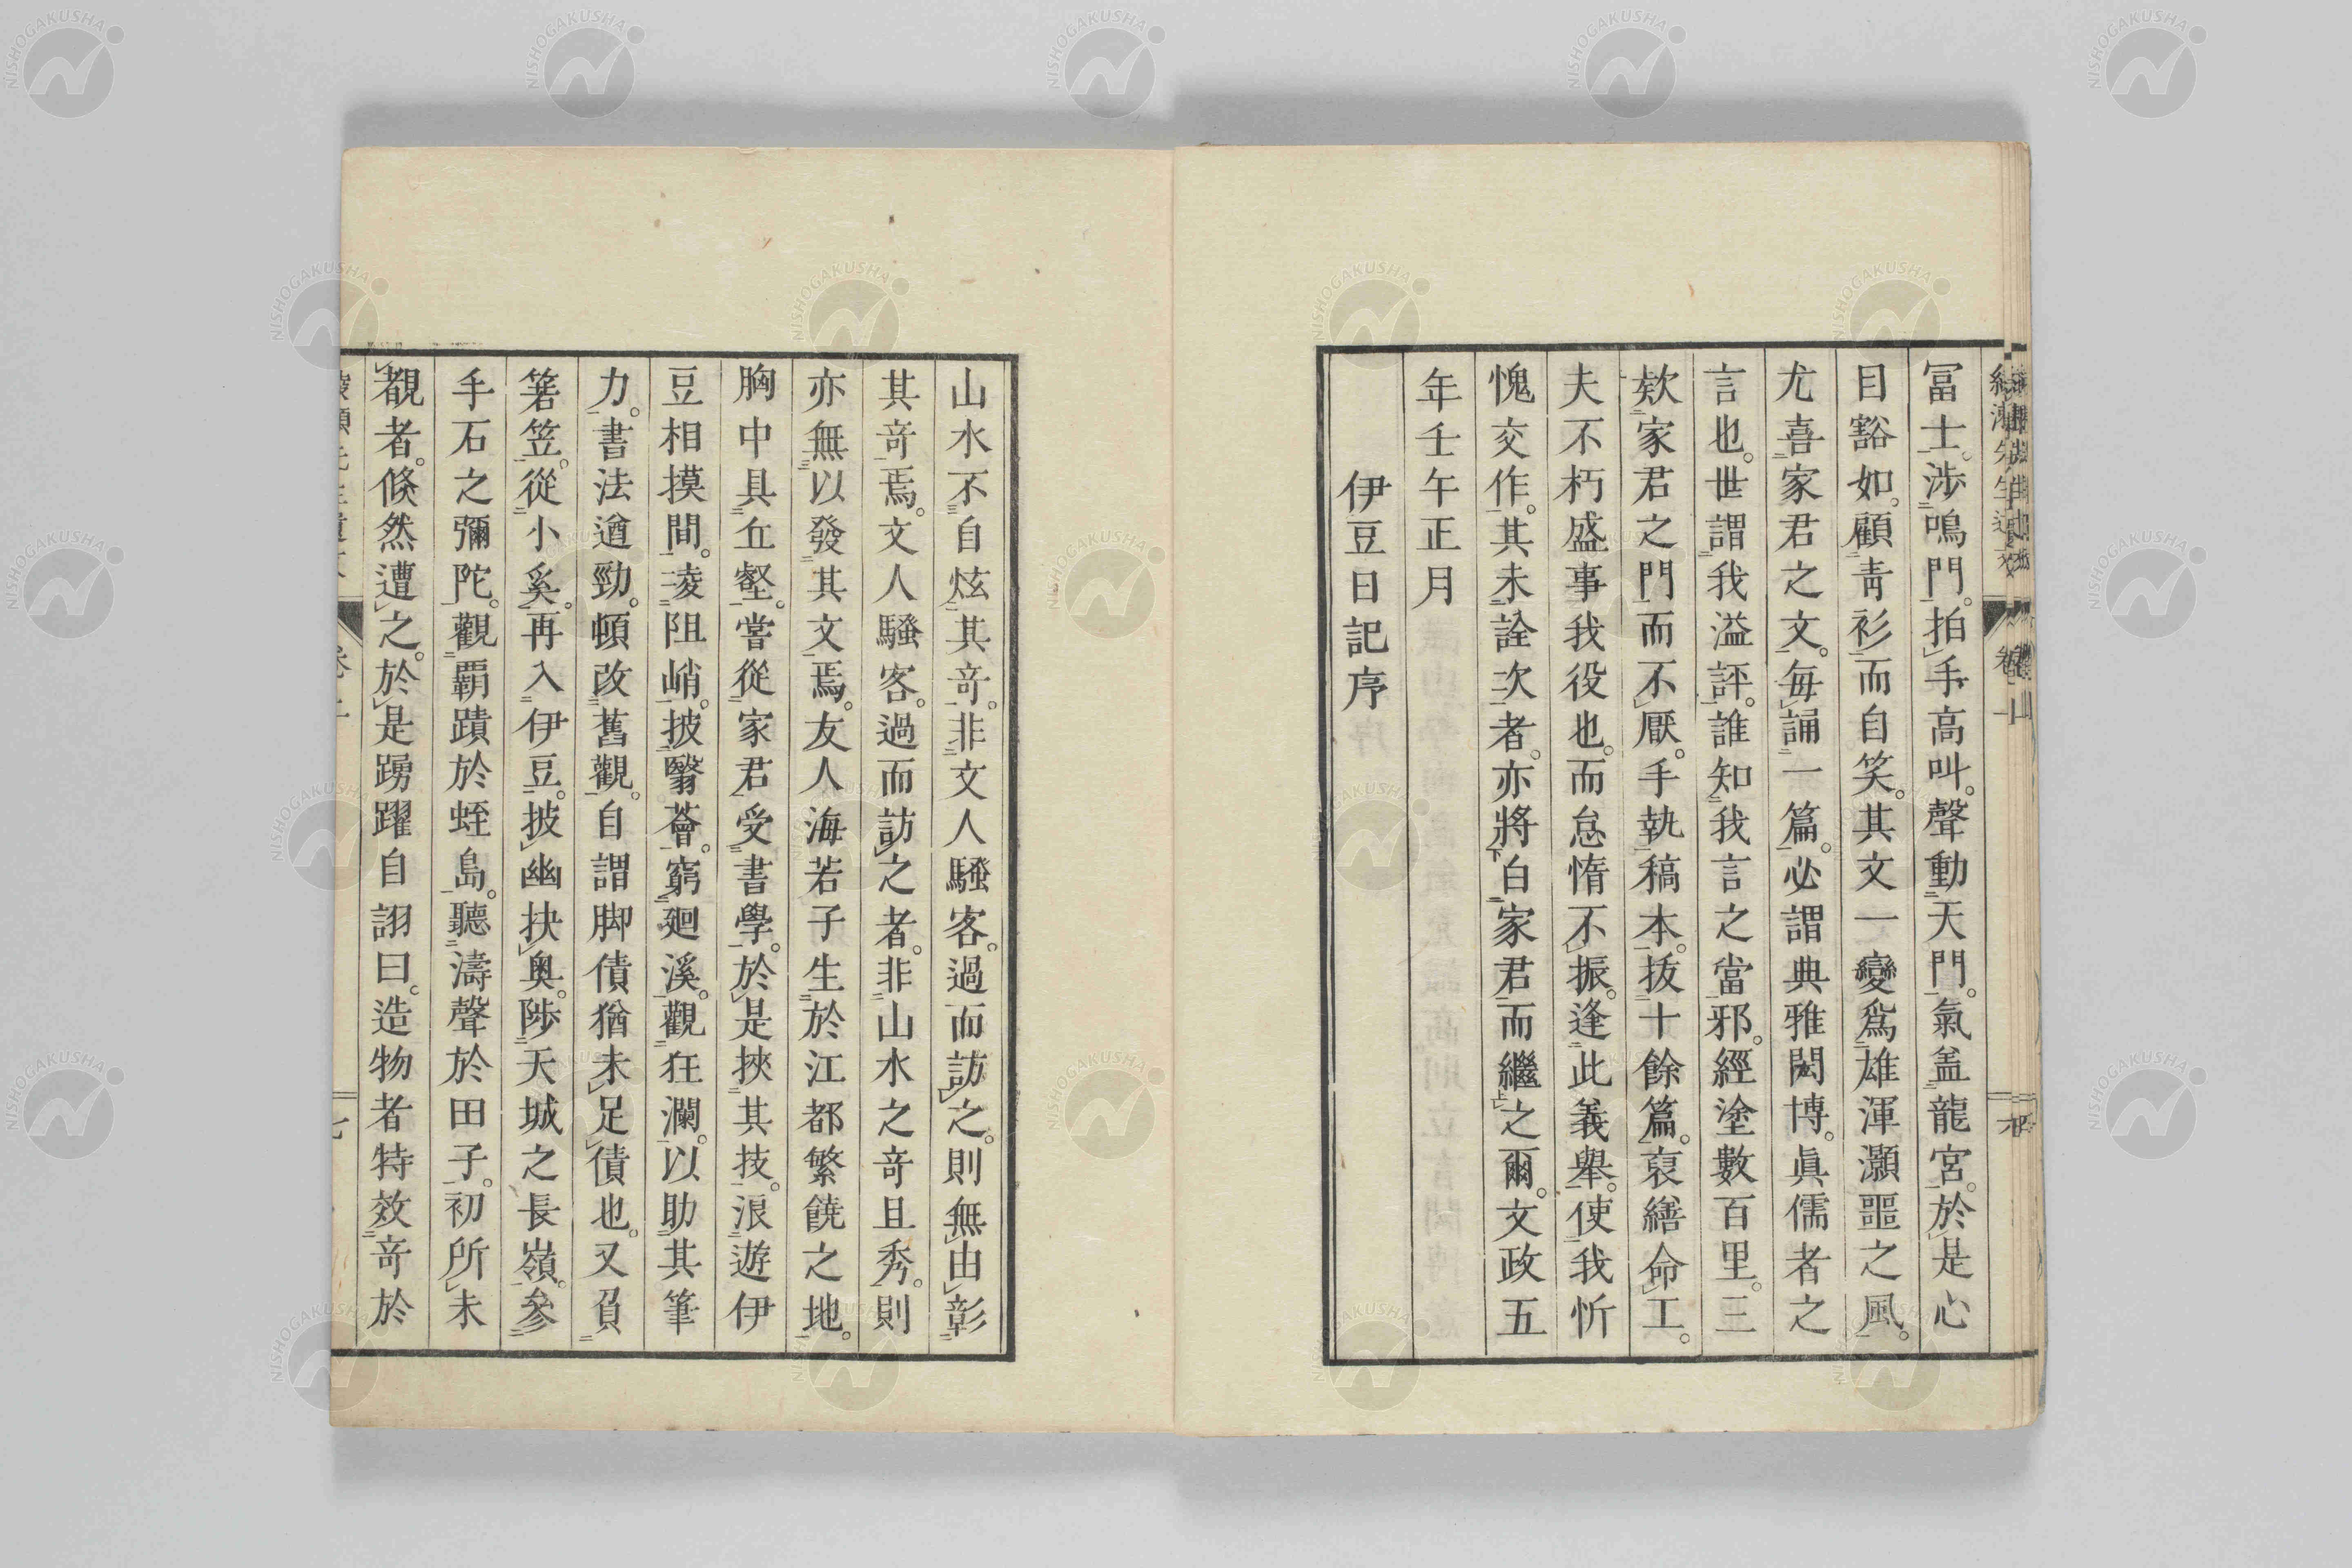 冨士。涉鳴門。拍手高叫。聲動天門。氣盖龍宮。於是心
目豁如。顧靑衫而自笑。其文一變爲雄渾灝噩之風。
尤喜家君之文。每誦一篇。必謂典雅閎博。眞儒者之
言也。世謂我溢評。誰知我言之當邪。經塗數百里。三
欸家君之門而不厭。手執稿本。抜十餘篇。裒繕命工。
夫不朽盛事我役也。而怠惰不振。逢此義舉。使我忻
愧交作。其未詮次者。亦將白家君而繼之爾。文政五
年壬午正月
伊豆日記序
山水不自炫其奇。非文人騷客。過而訪之。則無由彰
其奇焉。文人騷客。過而訪之者。非山水之奇且秀。則
亦無以發其文焉。友人海若子生於江都繁饒之地。
胸中具丘壑。嘗從家君受書學。於是挾其技。浪遊伊
豆相摸間。凌阻峭。披翳薈。窮廻溪。觀狂瀾。以助其筆
力。書法遒勁。頓改舊觀。自謂脚債猶未足債也。又負
箬笠。從小奚。再入伊豆。披幽抉奥。陟天城之長嶺。參
手石之彌陀。觀覇蹟於蛭島。聽濤聲於田子。初所未
覩者。倏然遭之。於是踴躍自詡曰。造物者特效奇於